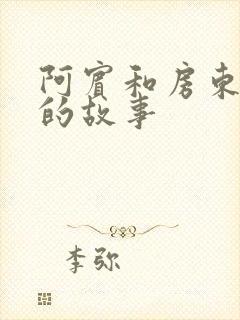 阿宾和房东
的故事
李弥